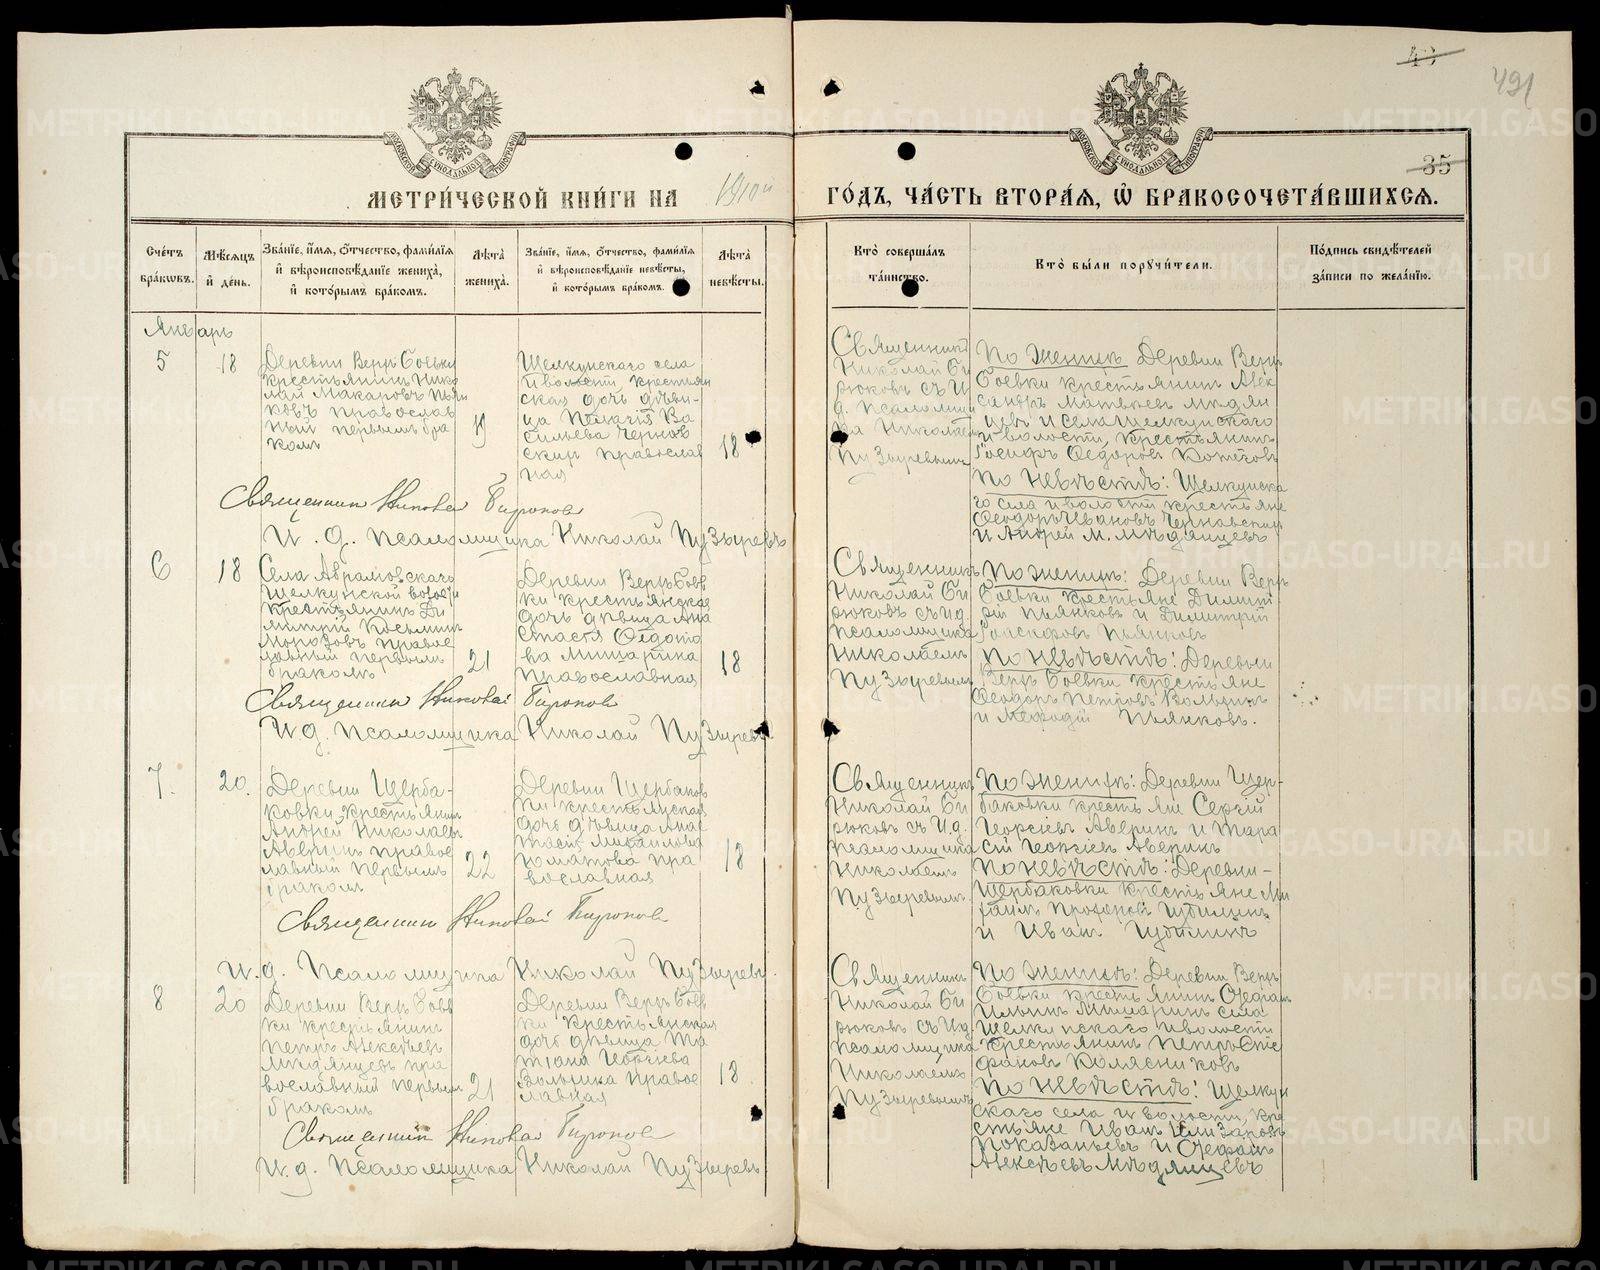 43
491
35
МОСКОВСКОЙ СѴНОДАЛЬНОЙ ТИПОГРАФІИ
МОСКОВСКОЙ СѴНОДАЛЬНОЙ ТИПОГРАФІИ
МЕТРИ́ЧЕСКОЙ КНИ́ГИ НА 1910й ГО́ДЪ, ЧА́СТЬ ВТОРА́Я, Ѡ҆ БРАКОСОЧЕТА́ВШИХСЯ.
Сче́тъ бра́кѡвъ.
Мѣ́сяцъ и҆ де́нь.
Зва́нїе, и҆́мя, ѻ҆́тчество, фами́лїя и҆ вѣроисповѣ́данїе жениха̀, и҆ кото́рымъ бра́комъ.
Лѣ́та жениха̀.
Зва́нїе, и҆́мя, ѻ҆́тчество, фами́лїя и҆ вѣроисповѣ́данїе невѣ́сты, и҆ кото́рымъ бра́комъ.
Лѣ́та невѣ́сты.
Кто̀ соверша́лъ та́инство.
Кто̀ бы́ли порꙋчи́тели.
По́дпись свидѣ́телей за́писи по жела́нїю.
Январь
5
18
Деревни Верх Боевки
крестьянинъ Нико
лай Макаровъ Пьян
ковъ православ
ный первымъ бра
комъ
19
Щелкунскаго села
и волости крестьян
ская дочь дѣви-
ца Пелагія Ва
сильева Чернов
скихъ православ
ная
18
Священникъ
Николай Би
рюковъ съ И
д. псаломщи
ка Николаемъ
Пузыревымъ
По женихѣ: Деревни Верх
Боевки крестьянин Алек
сандръ Матвѣевъ Медян
цевъ и села Щелкунскаго
и волости, крестьянинъ
Іосифъ Ѳедоровъ
По невѣстѣ: Щелкунска
го села и волости крестьяне
Ѳеодоръ Ивановъ Черновскихъ
и Андрей М. Медянцевъ
Священникъ Николай Бирюковъ
И. д. псаломщика Николай Пузыревъ
6
18
Села Аврамовскаго
Щелкунской волости
крестьянинъ Ди
митрій Косьминъ
Морозовъ правос
лавный первымъ
бракомъ
21
Деревни Верхъ Боев
ки крестьянская
дочь дѣвица Ана
стасія Ѳедото
ва Мишарина
православная
18
Священникъ
Николай Би
рюковъ съ И.д.
псаломщика
Николаемъ
Пузыревымъ
По женихѣ: Деревни Верх
Боевки крестьяне Димит-
рій Пьянковъ и Димитрій
Пьянковъ
По невѣстѣ: Деревни
Верх Боевки крестьяне
Ѳеодоръ Петровъ Вольхинъ
и Меѳодій Пьянковъ.
Священникъ Николай Бирюковъ
И д. псаломщика Николай Пузыревъ
7.
20.
Деревни Щерба-
ковки крестьянинъ
Андрей Николаевъ
Аверинъ правос
лавный первымъ
бракомъ
22
Деревни Щербаков
ки крестьянская
дочь дѣвица Анас
тасія Михаилова
Юматова пра
вославная
18
Священникъ
Николай Би
рюковъ съ И.д.
псаломщика
Николаемъ
Пузыревымъ
По женихѣ: Деревни Щер-
баковки крестьяне Сергій
Георгіевъ Аверинъ и Тара
сій Георгіевъ Аверинъ
По невѣстѣ: Деревни-
Щербаковки крестьяне Ми
хаилъ
и Иванъ
Священникъ Николай Бирюковъ
И. д. псаломщика Николай Пузыревъ.
8
20
Деревни Верх Боев
ки крестьянинъ
Петръ Алексѣевъ
Медянцевъ пра
вославный первымъ
бракомъ
21
Деревни Верх Боев
ки крестьянская
дочь дѣвица Та
тіана Георгіева
Вольхина правос
лавная
18
Священникъ
Николай Би
рюковъ съ И.д.
псаломщика
Николаемъ
Пузыревымъ
По женихѣ: Деревни Верх
Боевки крестьянинъ Стефан
Ильинъ Мишаринъ села
Щелкунскаго и волости
крестьянинъ Петръ Сте
фановъ Колясниковъ
По невѣстѣ: Щелкун
скаго села и волости, кре
стьяне Иванъ Елизаровъ
Показаньевъ и Стефанъ
Алексѣевъ Медянцевъ
Священникъ Николай Бирюковъ
И. д. псаломщика Николай Пузыревъ
METRIKI.GASO-URAL.RU